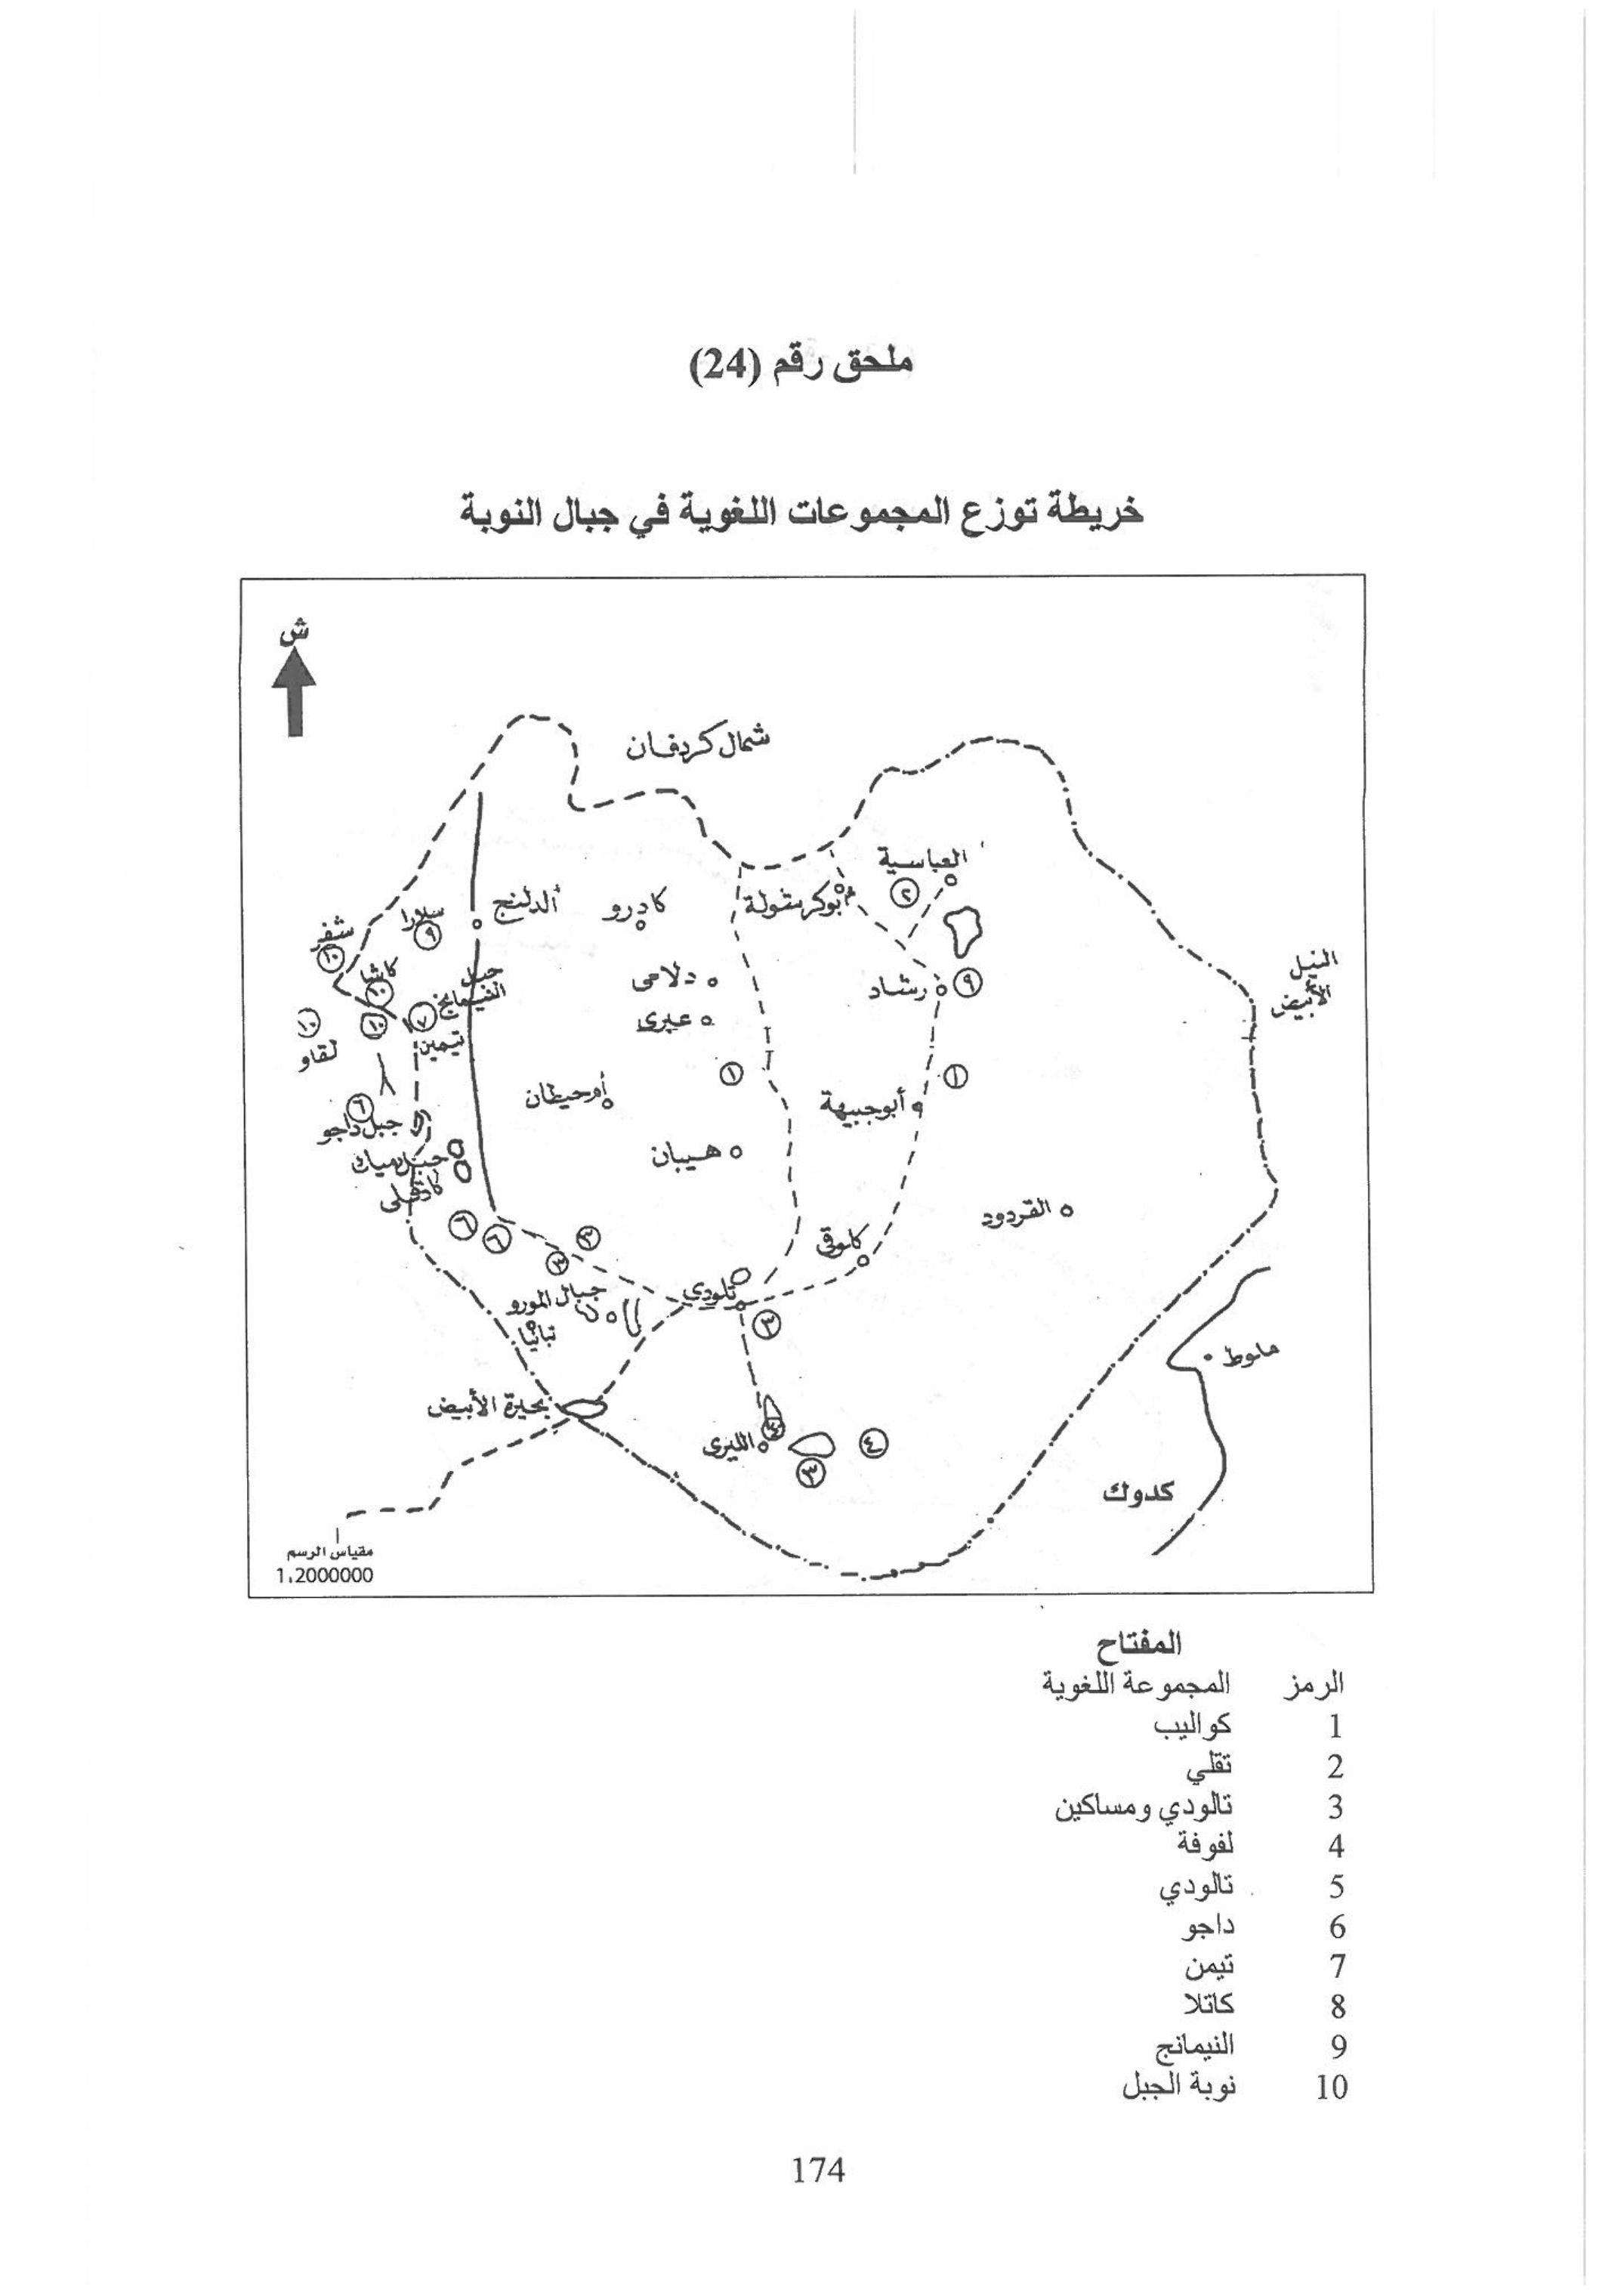 ملحق رقم (24)
خريطة توزع المجموعات اللغوية في جبال النوبة
ش
شمال كردفان
العباسية
٢
أبوكرشولة
كادرو
الدلنج
سلارا
٩
شفر
١٠
كاشا
١٠
جبل
النيمانج
٧
تيمين
١٠
لقاو
دلامى
عبرى
رشاد
٩
النيل
الأبيض
١
١
أبوجبيهة
أمحيطان
٦
جبل داجو
هيبان
كادقلى
القردود
٦
٦
٣
٣
كلوقى
تلودى
٣
جبال المورو
تبانيا
ملوط
بحيرة الأبيض
الليرى
٤
٣
كدوك
مقياس الرسم
1،2000000
المفتاح
الرمز المجموعة اللغوية
1 كواليب
2 تقلي
3 تالودي ومساكين
4 لفوفة
5 تالودي
6 داجو
7 تيمن
8 كاتلا
9 النيمانج
10 نوبة الجبل
174